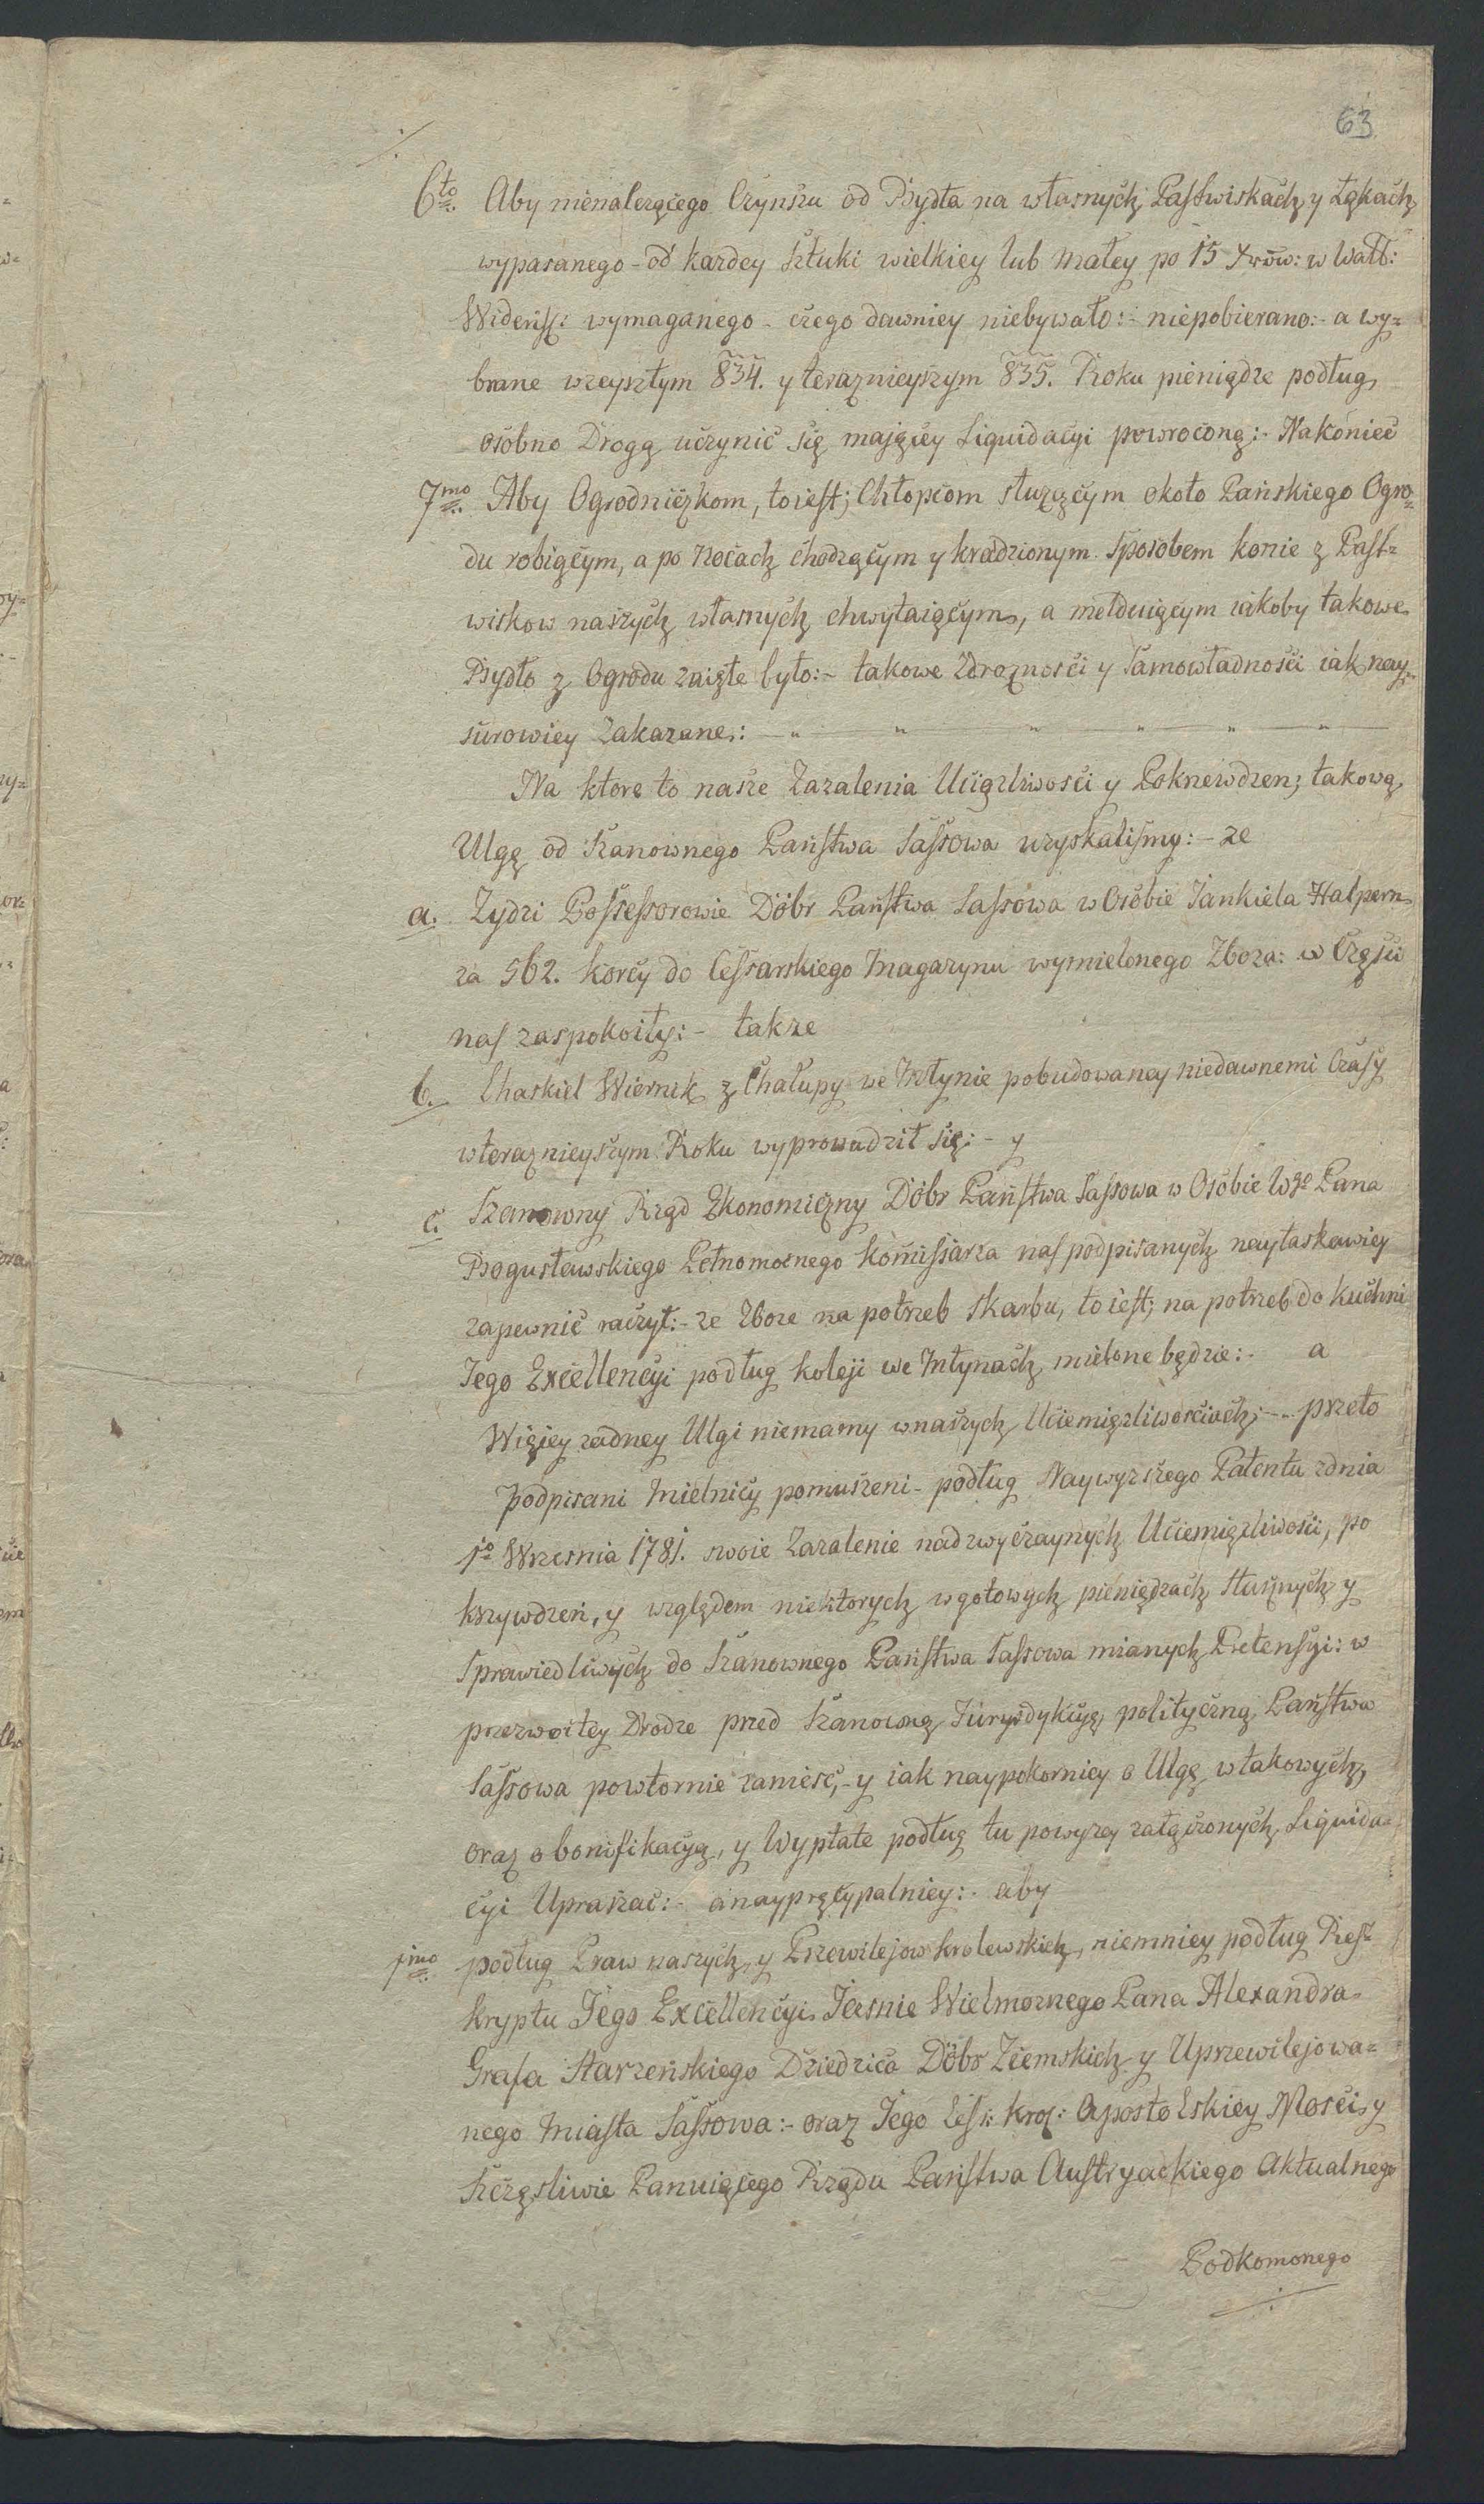 63
6to Aby nienalezącego Czynszu od Bydła na własnych Pastwiskach y Łąkach
wypasanego - od kazdey sztuki wielkiey lub małey po 15 Xrow: w Wall:
Wideńs: wymaganego - czego dawniey niebywało:- niepobierano:- a wy=
brane wzeyszłym 834. y teraznieyszym 835. Roku pieniądze podług
osobno Drogą uczynić się maiącey Liquidacyi powrocone:- Nakoniec
7mo Aby Ogrodniczkom, toiest; Chłopcom słuzącym około Pańskiego Ogro=
du robiącym, a po nocach chodzącym y kradzionym sposobem konie z Past=
wiskow naszych własnych chwytaiącym, a melduiącym iakoby takowe
Bydło z Ogrodu zaięte było:- takowe Zdroznosci y Samowładnosci iak nay=
surowiey Zakazane:- " " " " " "
Na ktore to nasze Zazalenia Uciązliwosci y Pokrzewdzen; takową
Ulgę od Szanownego Państwa Sassowa uzyskalismy:- ze
a. Zydzi Possessorowie Dóbr Państwa Sassowa w Osobie Jankiela Halpern
za 562. korcy do Cessarskiego Magazynu wymielonego Zboza: w Częsci
nas zaspokoiły:- takze
b. Chaskiel Wiernik z Chałupy we Młynie pobudowaney niedawnemi Czasy
wteraznieyszym Roku wyprowadził się:- y
c. Szanowny Rząd Ekonomiczny Dóbr Państwa Sassowa w Osobie Wgo Pana
Bogusławskiego Pełnomocnego Komissarza nas podpisanych nayłaskawiey
zapewnić raczył:- ze Zboze na potrzeb skarbu, to iest; na potrzeb do kuchni
Jego Excellencyi podług koleji we Młynach mielone będzie:- a
Więcey zadney Ulgi niemamy wnaszych Uciemięzliwosciach;- przeto
podpisani Mielnicy pomuszeni - podług Naywyzszego Patentu zdnia
1o Wrzesnia 1781. swoie Zazalenie nadzwyczaynych Uciemięzliwosci, po
krzywdzeń, y względem niektorych wgotowych pieniędzach słusznych y
sprawiedliwych do Szanownego Państwa Sassowa mianych Pretensyi: w
przezwoitey Drodze przed Szanowną Jurysdykcyę polityczną Państwa
Sassowa powtornie zanieść,- y iak naypokorniey o Ulgę wtakowych,
oraz o bonifikacyą, y Wypłate podług tu powyzey załączonych Liquida=
cyi Upraszać:- a nayprzcypalniey:- aby
1mo podług Praw naszych, y Przewilejow krolewskich, niemniey podług Res=
kryptu Jego Excellencyi Jasnie Wielmoznego Pana Alexandra
Grafa Starzeńskiego Dziedzica Dóbr Ziemskich y Uprzewilejowa=
nego Miasta Sassowa:- oraz Jego Ces: Kroy: Apostolskiey Mosci, y
szczęsliwie Panuiącego Rządu Państwa Austryackiego Aktualnego
Podkomonego